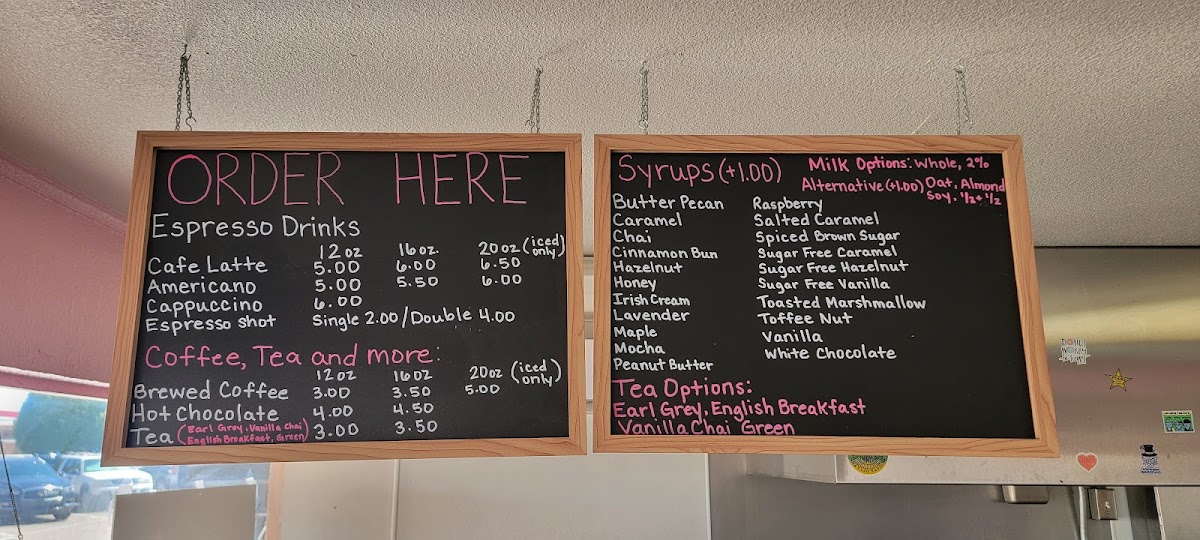 ORDER HERE
Espresso Drinks
12oz 16oz. 20oz (iced only)
Cafe Latte 5.00 6.00 6.50
Americano 5.00 5.50 6.00
Cappuccino 6.00
Espresso shot Single 2.00 / Double 4.00
Coffee, Tea and more:
12oz 16oz 20oz (iced only)
Brewed Coffee 3.00 3.50 5.00
Hot Chocolate 4.00 4.50
Tea (Earl Grey, Vanilla Chai English Breakfast, Green) 3.00 3.50
Syrups (+1.00)
Milk Options: Whole, 2%
Alternative (+1.00) Oat, Almond
Soy, 1/2 + 1/2
Butter Pecan
Caramel
Chai
Cinnamon Bun
Hazelnut
Honey
Irish Cream
Lavender
Maple
Mocha
Peanut Butter
Raspberry
Salted Caramel
Spiced Brown Sugar
Sugar Free Caramel
Sugar Free Hazelnut
Sugar Free Vanilla
Toasted Marshmallow
Toffee Nut
Vanilla
White Chocolate
Tea Options:
Earl Grey, English Breakfast
Vanilla Chai Green